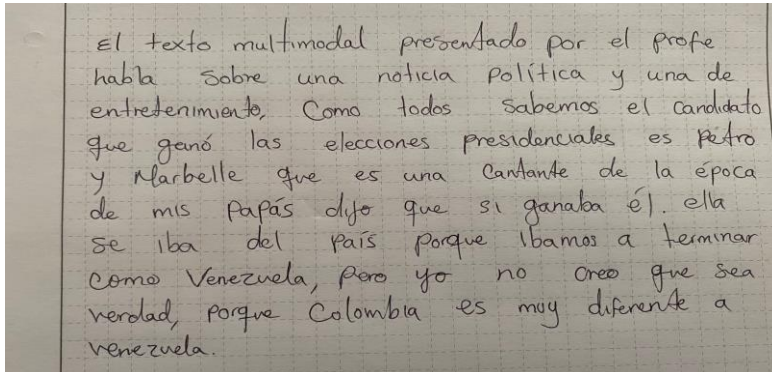 El texto multimodal presentado por el profe
habla sobre una noticia política y una de
entretenimiento, Como todos sabemos el candidato
que ganó las elecciones presidenciales es Petro
y Marbelle que es una cantante de la época
de mis papás dijo que si ganaba él. ella
se iba del país porque ibamos a terminar
como Venezuela, pero yo no creo que sea
verdad, porque Colombia es muy diferente a
venezuela.